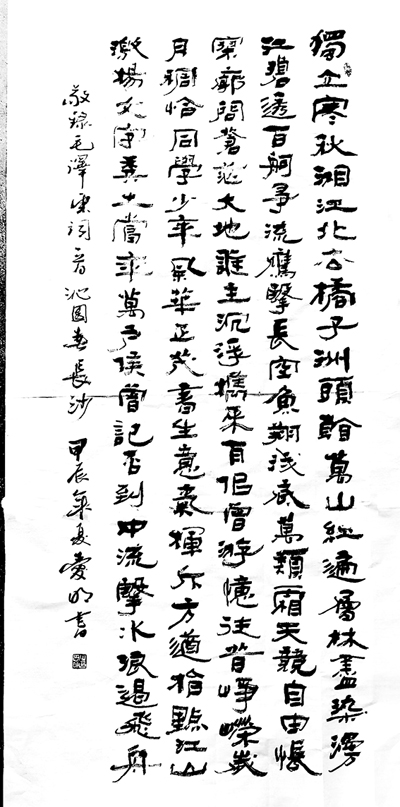 獨立寒秋湘江北去橘子洲頭看萬山紅遍層林盡染漫
江碧透百舸爭流鷹擊長空魚翔淺底萬類霜天競自由悵
寥廓問蒼茫大地誰主沉浮攜來百侶曾游憶往昔崢嶸歲
月稠恰同學少年風華正茂書生意氣揮斥方遒指點江山
激揚文字糞土當年萬戶侯曾記否到中流擊水浪遏飛舟
敬錄毛澤東詞一首沁園春長沙 甲辰年夏愛明書